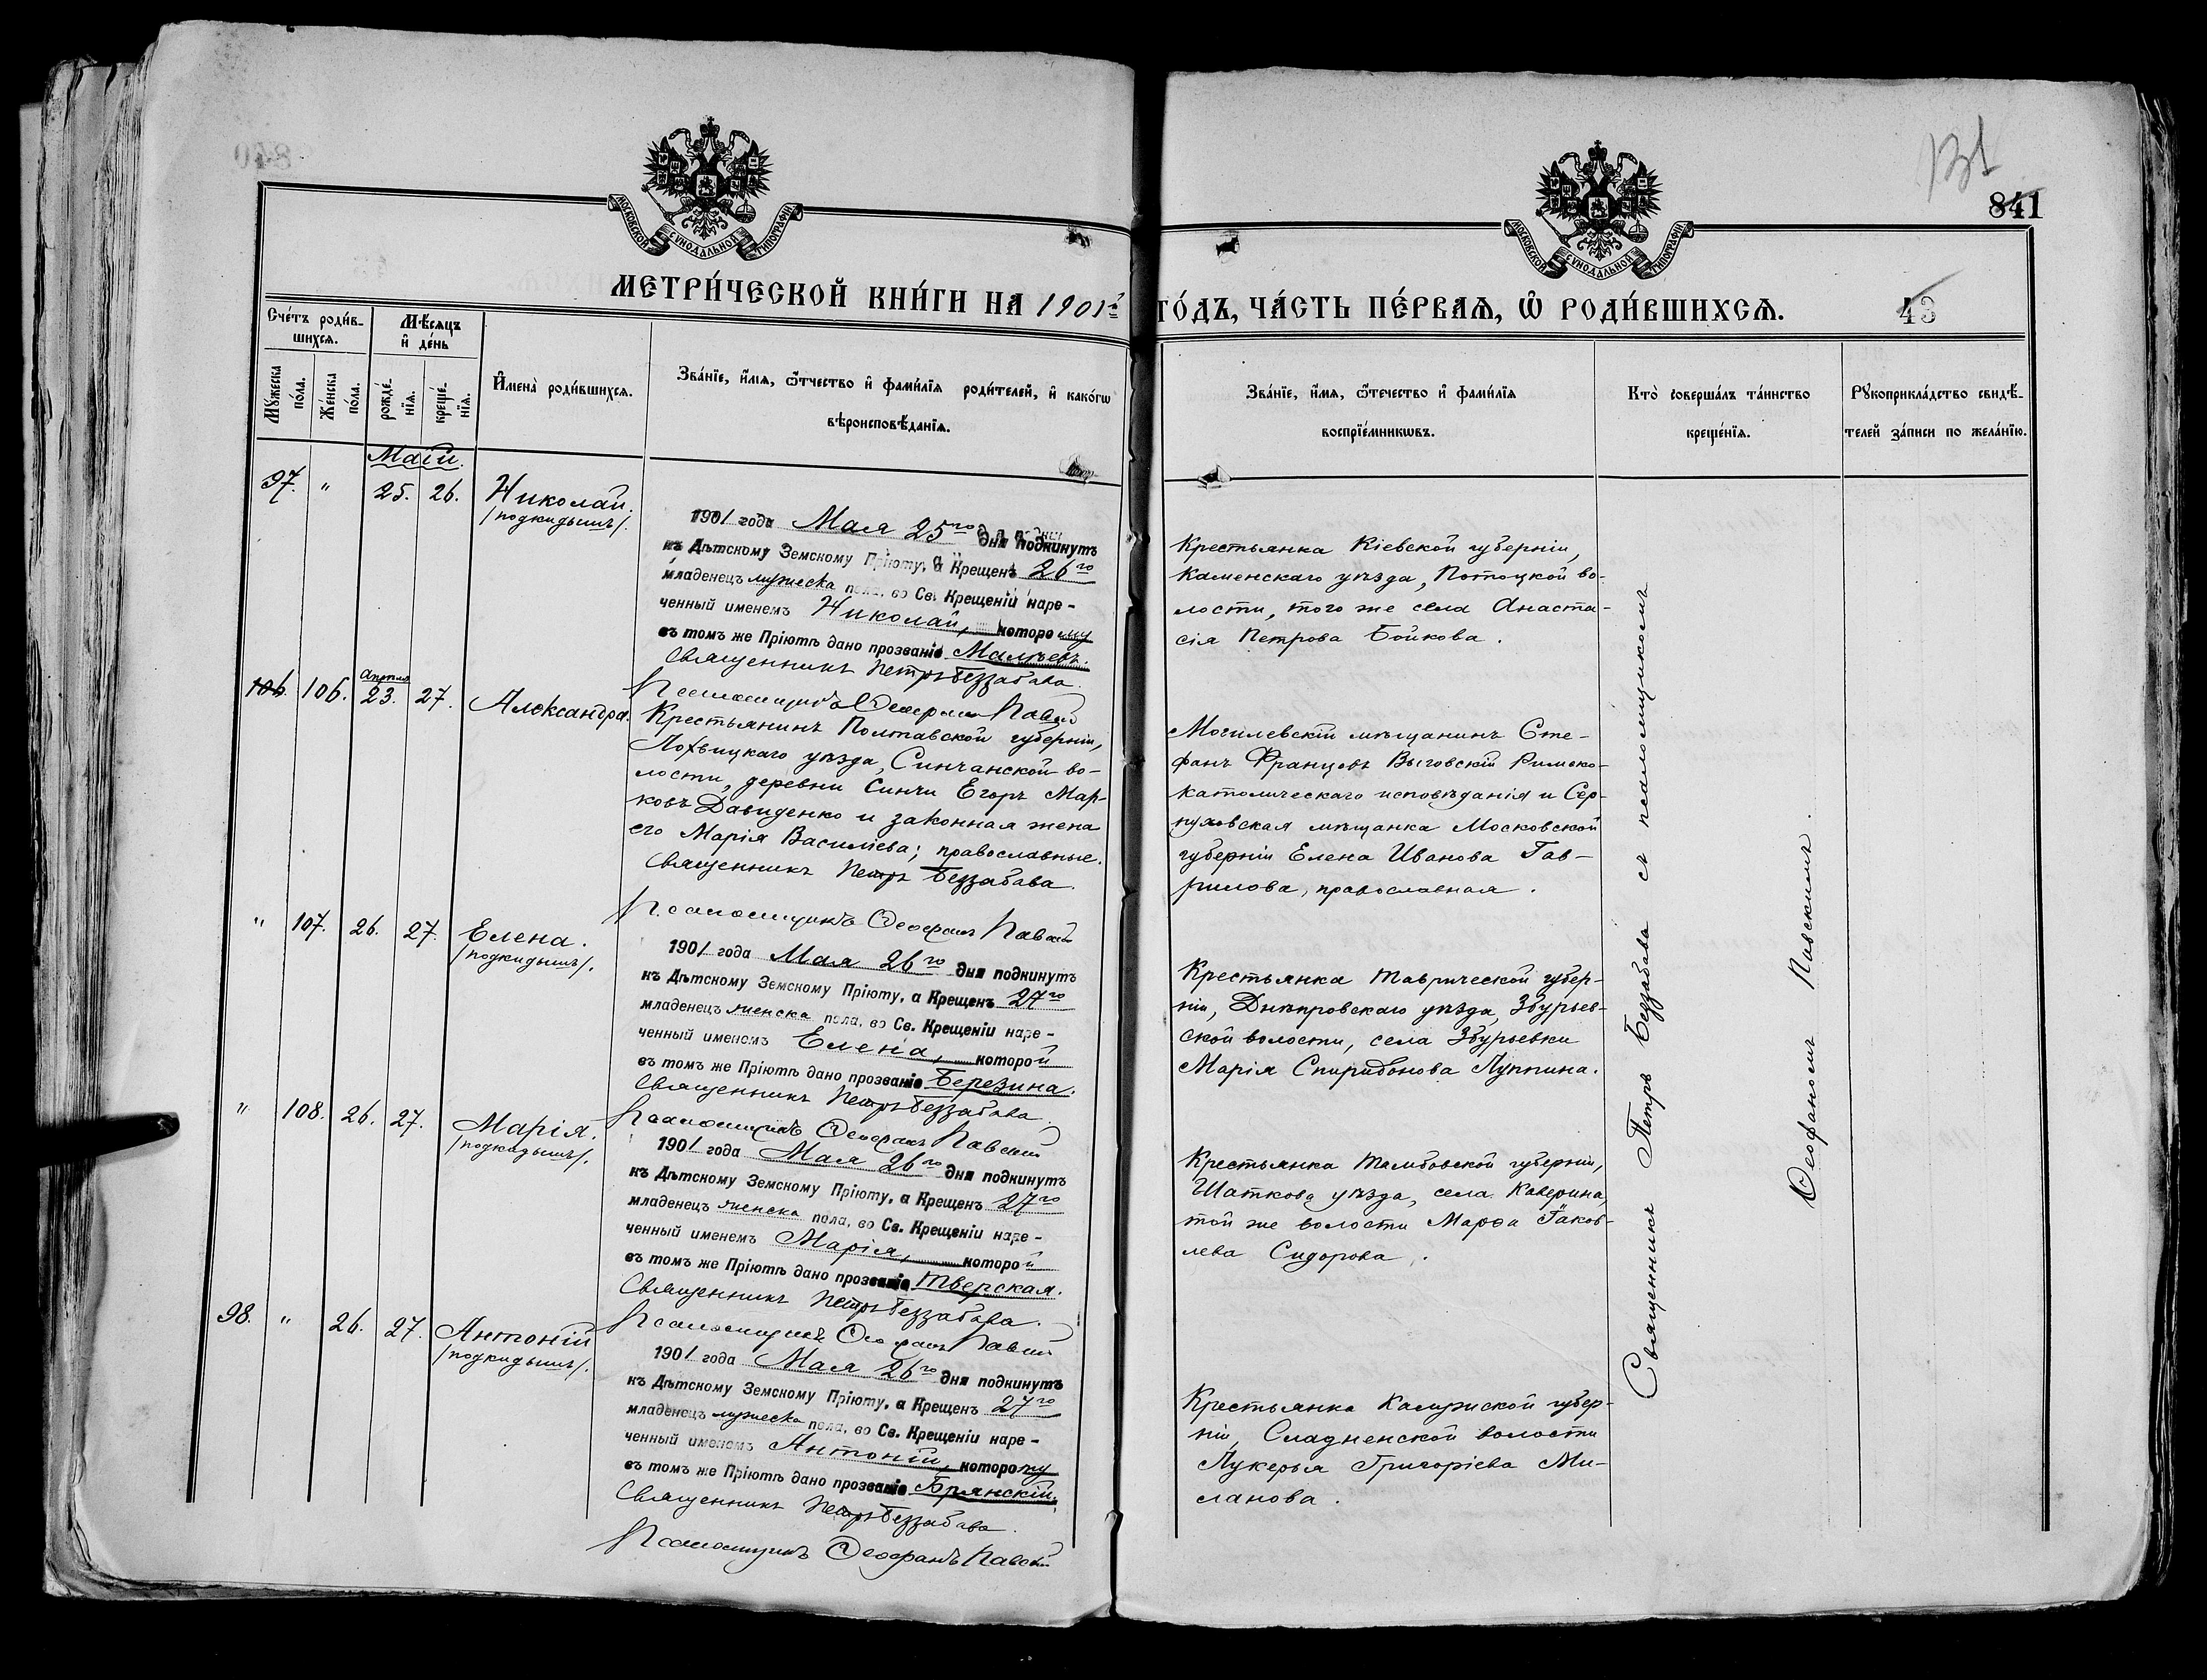 131
841
МОСКОВСКОЙ СУНОДАЛЬНОЙ ТИПОГРАФІИ
МОСКОВСКОЙ СУНОДАЛЬНОЙ ТИПОГРАФІИ
МЕТРИ́ЧЕСКОЙ КНИ́ГИ НА 1901й
ГО́ДЪ, ЧА́СТЬ ПЕ́РВАЯ, Ѡ РОДИ́ВШИХСЯ.
43
Сче́тъ роди́в-
шихся.
Мѣ́сяцъ
и де́нь
Му́жеска
по́ла.
Же́нска
по́ла.
рожде́-
нїя.
креще́-
нїя.
Имена̀ роди́вшихся.
Зва́нїе, и́мя, ѻ́тчество и фами́лїя роди́телей, и како́гѡ
вѣроисповѣ́данїя.
Зва́нїе, и́мя, ѻ́течество и фами́лїя
воспрїе́мникѡвъ.
Кто̀ соверша́лъ та́инство
креще́нїя.
Рукоприкла́дство свидѣ́-
телей за́писи по жела́нїю.
Маій.
97. " 25. 26. Николай.
/подкидышъ/.
1901 года Мая 25го дня подкинутъ
къ Дѣтскому Земскому Пріюту, а Крещенъ 26го
младенецъ мужеска пола, во Св. Крещеніи наре-
ченный именемъ Николай, которому
въ томъ же Пріютѣ дано прозваніе
Священникъ Петръ Беззабава.
Псаломщикъ Ѳеофанъ Павскій
Крестьянка Кіевской губерніи,
Каменскаго уѣзда, Потоцкой во-
лости, того же села Анаста-
сія Петрова Бойкова.
106. 106. Апрѣля 23. 27. Александра.
Крестьянинъ Полтавской губерніи,
Лохвицкаго уѣзда, Синчанской во-
лости, деревни Синчи Егоръ Мар-
ковъ Давиденко и законная жена
его Марія Василіева; православные.
Священникъ Петръ Беззабава.
Псаломщикъ Ѳеофанъ Павскій
Могилевскій мѣщанинъ Сте-
фанъ Францовъ Выговскій Римско-
католическаго исповѣданія и Сер-
пуховская мѣщанка Московской
губерніи Елена Иванова Гав-
рилова, православная.
" 107. 26. 27. Елена.
/подкидышъ/.
1901 года Мая 26го дня подкинутъ
къ Дѣтскому Земскому Пріюту, а Крещенъ 27го
младенецъ женска пола, во Св. Крещеніи наре-
ченный именемъ Елена, которой
въ томъ же Пріютѣ дано прозваніе Березина.
Священникъ Петръ Беззабава.
Псаломщикъ Ѳеофанъ Павскій
Крестьянка Таврической губер-
ніи, Днѣпровскаго уѣзда, Збурьев-
ской волости, села Збурьевки
Марія Спиридонова Луппина.
" 108. 26. 27. Марія.
/подкидышъ/.
1901 года Мая 26го дня подкинутъ
къ Дѣтскому Земскому Пріюту, а Крещенъ 27го
младенецъ женска пола, во Св. Крещеніи наре-
ченный именемъ Марія, которой
въ томъ же Пріютѣ дано прозваніе Тверская.
Священникъ Петръ Беззабава.
Псаломщикъ Ѳеофанъ Павскій
Крестьянка Тамбовской губерніи,
Шаткова уѣзда, села Каверина,
той же волости Марѳа Іаков-
лева Сидорова.
98. " 26. 27. Антоній
/подкидышъ/.
1901 года Мая 26го дня подкинутъ
къ Дѣтскому Земскому Пріюту, а Крещенъ 27го
младенецъ мужеска пола, во Св. Крещеніи наре-
ченный именемъ Антоній, которому
въ томъ же Пріютѣ дано прозваніе Брянскій.
Священникъ Петръ Беззабава.
Псаломщикъ Ѳеофанъ Павскій
Крестьянка Калужской губер-
ніи, Сладненской волости
Лукерья Григоріева Ми-
ланова.
Священникъ Петръ Беззабава съ псаломщикомъ
Ѳеофаномъ Павскимъ.